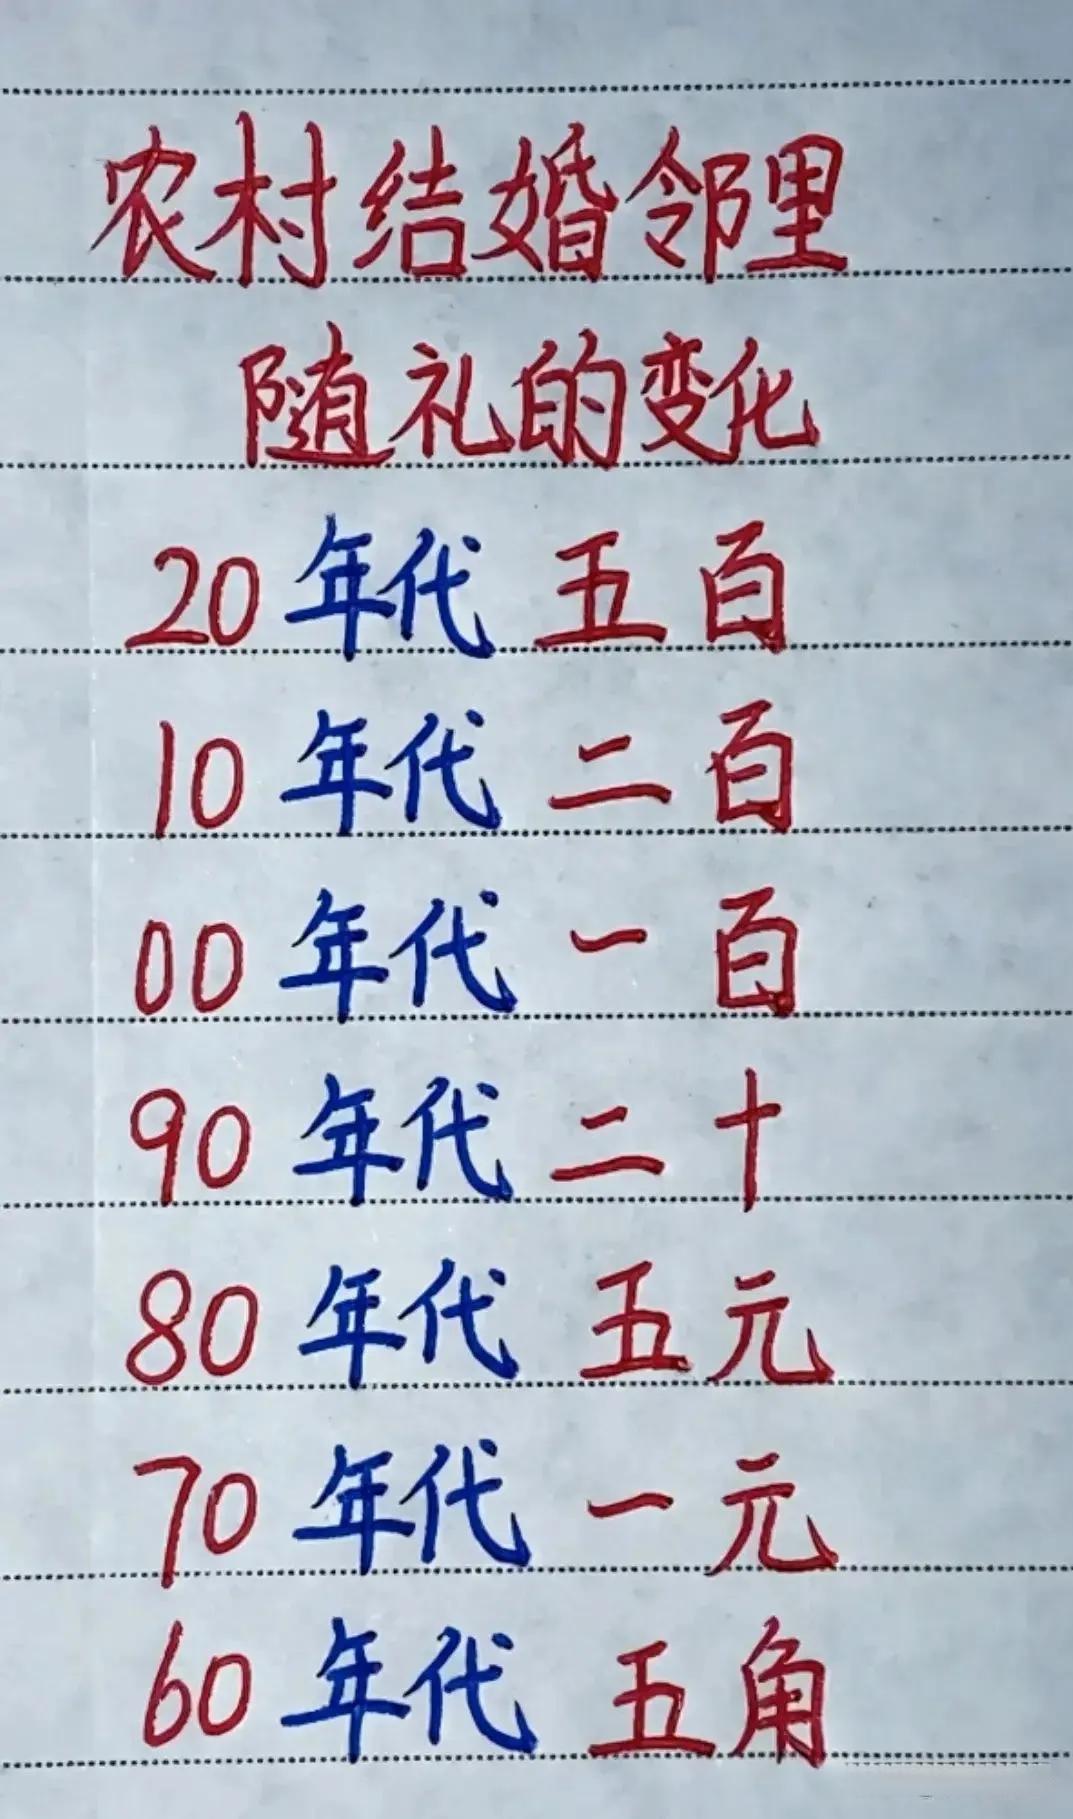 农村结婚邻里
随礼的变化
20年代 五百
10年代 二百
00年代 一百
90年代 二十
80年代 五元
70年代 一元
60年代 五角